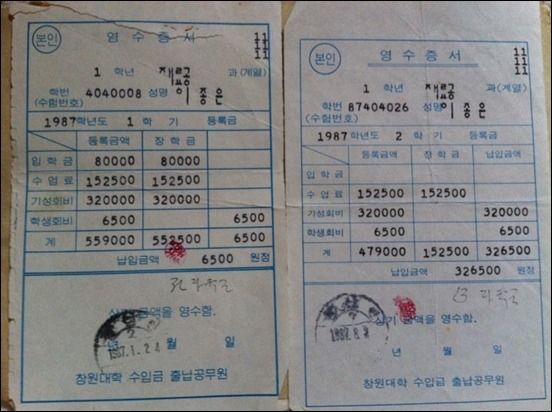 본인
영수증서
1 학년 재료공 과(계열)
학번 4040008 성명 이종은
(수험번호)
1987학년도 1 학기 등록금
등록금액 장학금
입학금 80000 80000
수업료 152500 152500
기성회비 320000 320000
학생회비 6500 6500
계 559000 552500 6500
납입금액 6500 원정
상기 금액을 영수함.
년 월 일
1987.1.24
창원대학 수입금 출납공무원
본인
영수증서
1 학년 재료공 과(계열)
학번 87404026 성명 이종은
(수험번호)
1987학년도 2 학기 등록금
등록금액 장학금 납입금액
입학금
수업료 152500 152500
기성회비 320000 320000
학생회비 6500 6500
계 479000 152500 326500
납입금액 326500 원정
상기 금액을 영수함.
년 월 일
창원대학 수입금 출납공무원